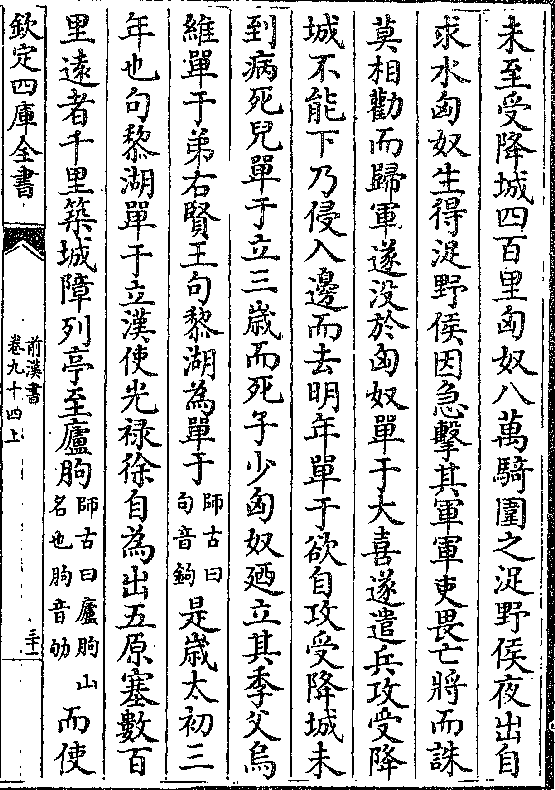 未至受降城四百里匈奴八萬騎圍之浞野侯夜出自
求水匈奴生得浞野侯因急擊其軍軍吏畏亡將而誅
莫相勸而歸軍遂没於匈奴單于大喜遂遣兵攻受降
城不能下乃侵入邊而去明年單于欲自攻受降城未
到病死兒單于立三歲而死子少匈奴廼立其季父烏
維單于弟右賢王句黎湖為單于師古曰句音鉤是歲太初三
年也句黎湖單于立漢使光禄徐自為出五原塞數百
里遠者千里築城障列亭至廬朐師古曰廬朐山名也朐音劬而使
欽定四庫全書
前漢書
卷九十四上
三十